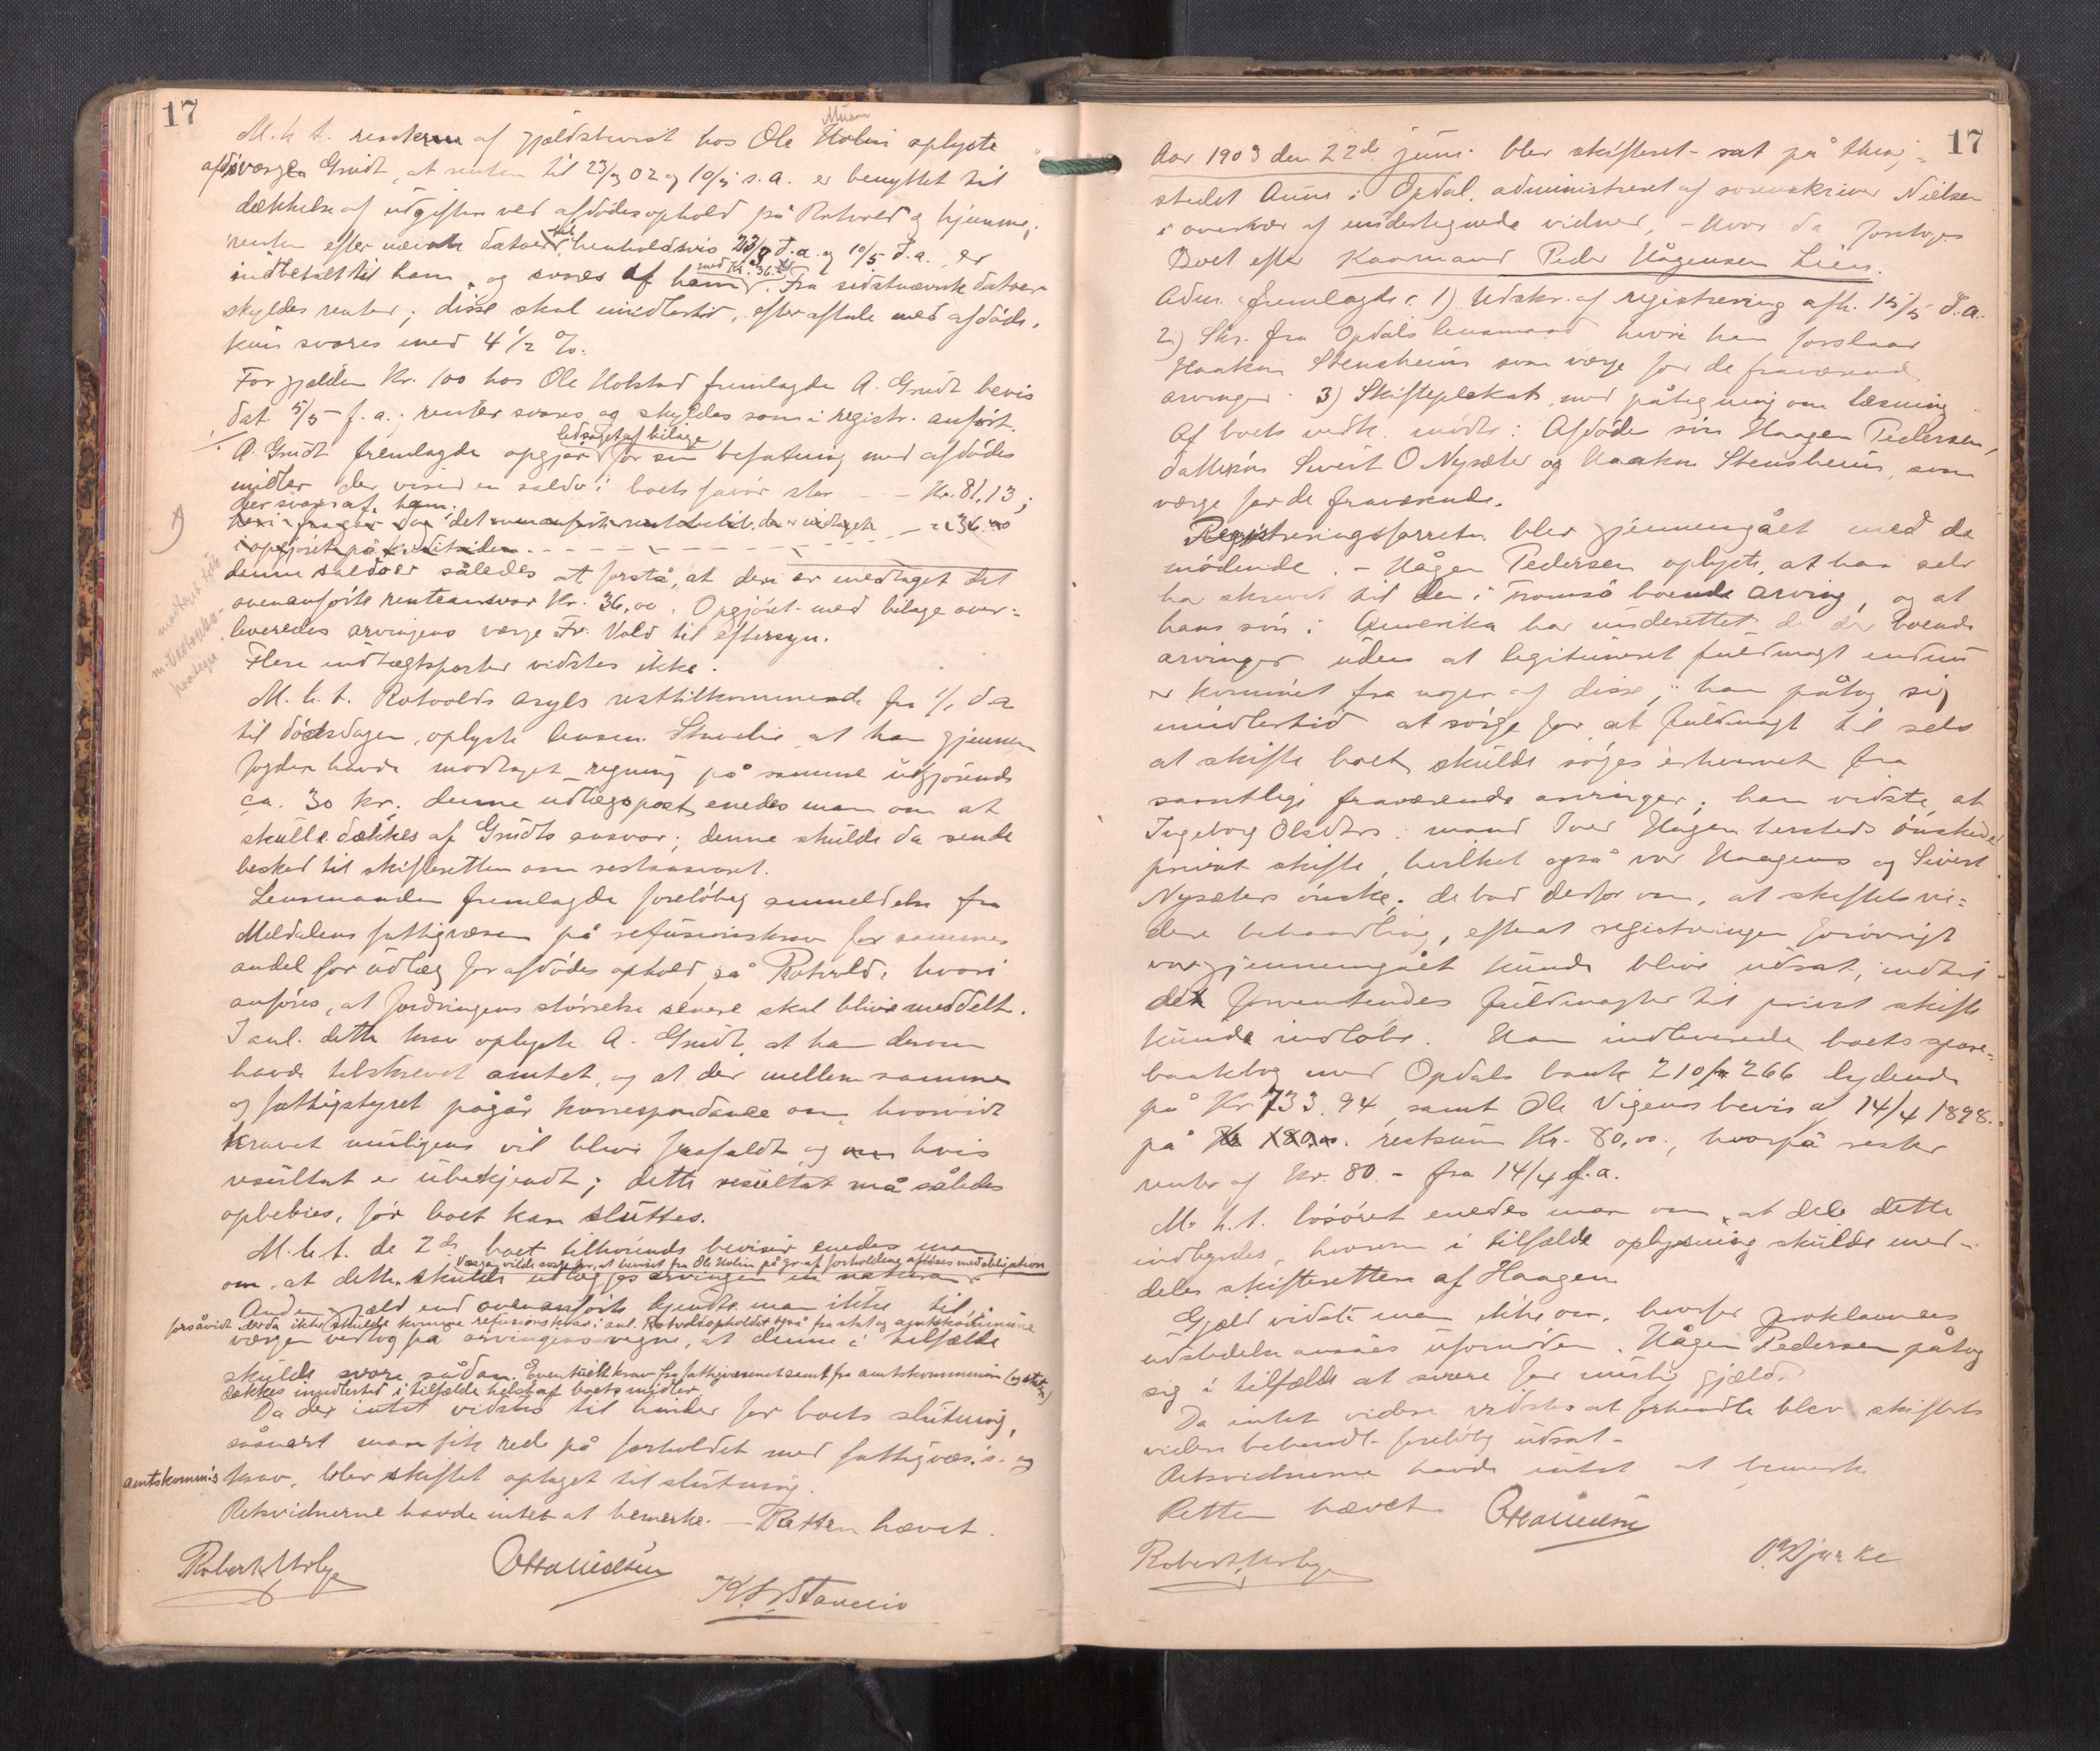 17
M. h. t. renterne af gjældsbevist hos Ole Holin oplyste
Muan
afd's værge Grudt, at renten til 23/9 02 og 10/5 s. a. er benyttet til
dækkelse af udgifter ved afdødes ophold på Rotvold og hjemme,
renten efter nævnte datoer til henholdsvis 23/9 d.a. og 10/5 d.a. er
indbetalt til ham, og svares af ham med Kr. 36.00. Fra sidstnævnte datoer
skyldes renter; disse skal imidlertid, efter aftale med afdøde,
kun svares med 4 1/2 %.
For gjælden Kr. 100 hos Ole Holstad fremlagde A. Grudt bevis
dat. 5/5 f. a.; renter svares og skyldes som i registr. anført.
A. Grudt fremlagde opgjør ledsaget af bilage for sin befatning med afdødes
midler der viser en saldo i boets favør stor - - Kr. 81.13;
der svares af ham;
det ovenanførte
i opgjøret på kreditsiden
36.00
denne saldo er således at forstå, at deri er medtaget det
ovenanførte renteansvar Kr. 36,00. Opgjøret med bilage over-
leveredes arvingens værge Fr. Vold til eftersyn.
Flere indtægtsposter vidstes ikke.
M. h. t. Rotvolds asyls resttilkommende fra 1/1 d a
til dødsdagen, oplyste lensm. Stavelie at han gjennem
fogden havde modtaget regning på samme udgjørende
ca. 30 kr.; denne udlægspost enedes man om at
skulle dækkes af Grudts ansvar; denne skulde da sende
besked til skifteretten om restansvaret.
Lensmanden fremlagde foreløbig anmeldelse fra
Meldalens fattigvæsen på refusionskrav for sammes
andel for udlæg for afdødes ophold på Rotvold, hvori
anføres, at fordringens størrelse senere skal blive meddelt.
I anl. dette krav oplyste A. Grudt, at han derom
havde tilskrevet amtet, og at der mellem samme
og fattigstyret pågår korrespondance om, hvorvidt
kravet muligens vil blive frafaldt og om hvis
resultat er ubekjendt; dette resultat må således
opbebies, før boet kan sluttes.
M. h. t. de 2de boet tilhørende beviser enedes man
Værgen vilde sørge for, at beviset fra Ole Holin på gr. af forholdene afløses med obligation
om, at dette skulde udlægges arvingen in natura.
Anden gjæld end ovenanførte kjendte man ikke til,
forsåvidt derda ikke skulde komme refusionskrav i anl. Rotvoldopholdet også fra stat og amtskommune
værgen vedtog på arvingens vegne, at denne i tilfælde
skulde svare sådan. Eventuelt krav fra fattigvæsenet samt fra amtskommunen (og staten)
dækkes imidlertid i tilfælde helst af boets midler.
Da der intet vidstes til hinder for boets slutning,
såsnart man fik rede på forholdet med fattigvæs.'s og
amtskomm's krav, blev skiftet optaget til slutning.
Retsvidnerne havde intet at bemerke. — Retten hævet.
Robert Urbye
Otto Nielsen
K. Stavelie
17
Aar 1903 den 22de juni blev skifteret sat på thing-
stedet Aune i Opdal, administreret af sorenskriver Nielsen
i overvær af undertegnede vidner, - hvor da foretoges
Boet efter Kaarmand Peder Hågensen Lien.
Adm. fremlagde: 1) Udskr. af registrering afh. 15/5 d. a.
2) Skr. fra Opdals lensmand hvori han forslaar
Haakon Stensheim som værge for de fraværende
arvinger. 3) Skifteplakat med påtegning om læsning.
Af boets vedk. mødte: Afdødes søn Haagen Pedersen,
dattersøn Sivert O Nysæter og Haakon Stensheim, som
værge for de fraværende.
Registreringsforretn. blev gjennemgået med de
mødende. - Hågen Pedersen oplyste, at han selv
ha skrevet til den i Tromsø boende arving, og at
hans søn i Amerika har underrettet de der boende
arvinger uden at legitimeret fuldmagt endnu
er kommet fra nogen af disse; han påtog sig
imidlertid at sørge for, at fuldmagt til selv
at skifte boet, skulde søges erhvervet fra
samtlige fraværende arvinger; han vidste, at
Ingeborg Olsdtrs. mand Iver Hågen hersteds ønskede
privat skifte, hvilket også var Haagens og Sivert
Nysæters ønske; de bad derfor om, at skiftets vi-
dere behandling, efterat registreringen forøvrigt
var gjennemgået kunde blive udsat, indtil
de forventendes fuldmagter til privat skifte
kunde indløbe. Han indleverede boets spare-
bankbog med Opdals bank 210/266 lydende
på Kr. 733.94, samt Ole Vigens bevis af 14/4 1898.
på Kr 180.00. restsum Kr. 80,00., hvorpå rester
renter af Kr. 80.- fra 14/4 f. a.
M. h. t. løsøret enedes man om, at dele dette
indbyrdes, hvorom i tilfælde oplysning skulde med-
deles skifteretten af Haagen.
Gjæld vidste man ikke om, hvorfor proklamaes
udstedelse ansåes ufornøden. Hågen Pedersen påtog
sig i tilfælde at svare for mulig gjæld.
Da intet videre vidstes at forhandle blev skiftets
videre behandl. foreløbig udsat.
Retsvidnerne havde intet at bemerke
Retten hævet.
Otto Nielsen
Robert Urbye
O. Djurke